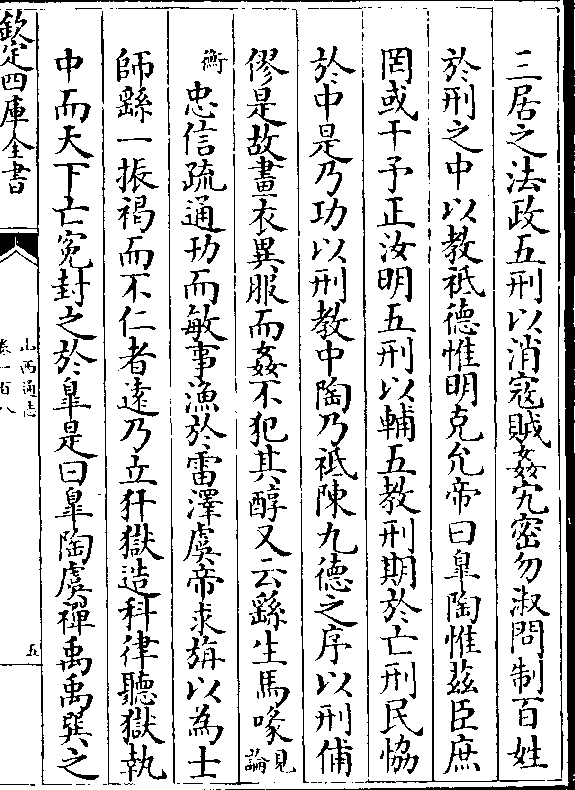 三居之法政五刑以消寇賊姦宄密勿淑問制百姓
於刑之中以教祗德惟明克允帝曰臯陶惟茲臣庶
罔或干予正汝明五刑以輔五教刑期於亡刑民恊
於中是乃功以刑教中陶乃祗陳九德之序以刑俌
僇是故畫衣異服而姦不犯其醇又云繇生馬喙見論
衡忠信疏通玏而敏事漁於雷澤虞帝求旃以為士
師繇一振褐而不仁者遠乃立犴獄造科律聽獄執
中而天下亡寃封之於臯是曰臯陶虞禪禹禹巽之
欽定四庫全書
山西通志
卷一百八
五